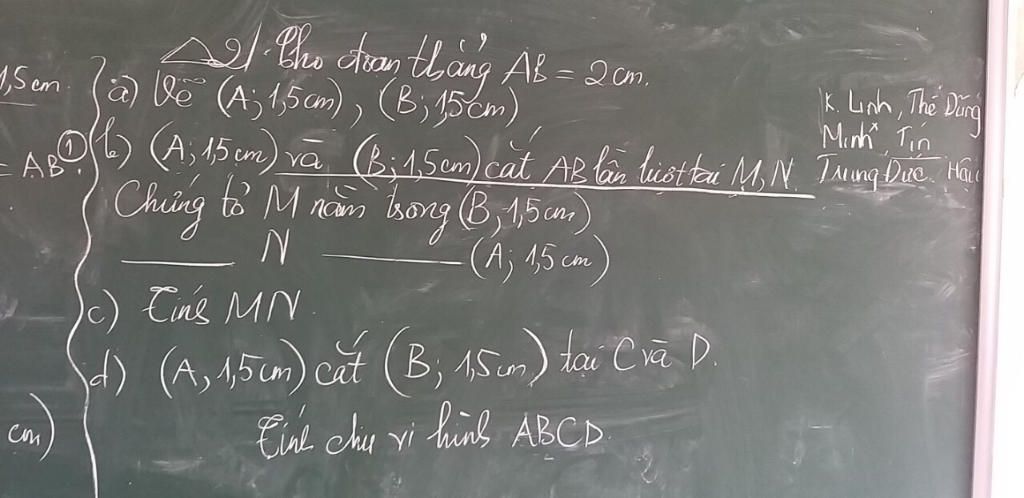 2/ Cho đoạn thẳng AB = 2cm.
1,5cm.
a) Vẽ (A; 1,5cm), (B; 1,5cm)
= AB. ①
b) (A; 1,5cm) và (B; 1,5cm) cắt AB lần lượt tại M, N.
Chứng tỏ M nằm trong (B, 1,5cm)
____ N ____ (A; 1,5cm)
c) Tính MN.
d) (A, 1,5cm) cắt (B; 1,5cm) tại C và D.
cm)
Tính chu vi hình ABCD.
K. Linh, Thế Dũng
Minh, Tín
Trung Đức. Hậu